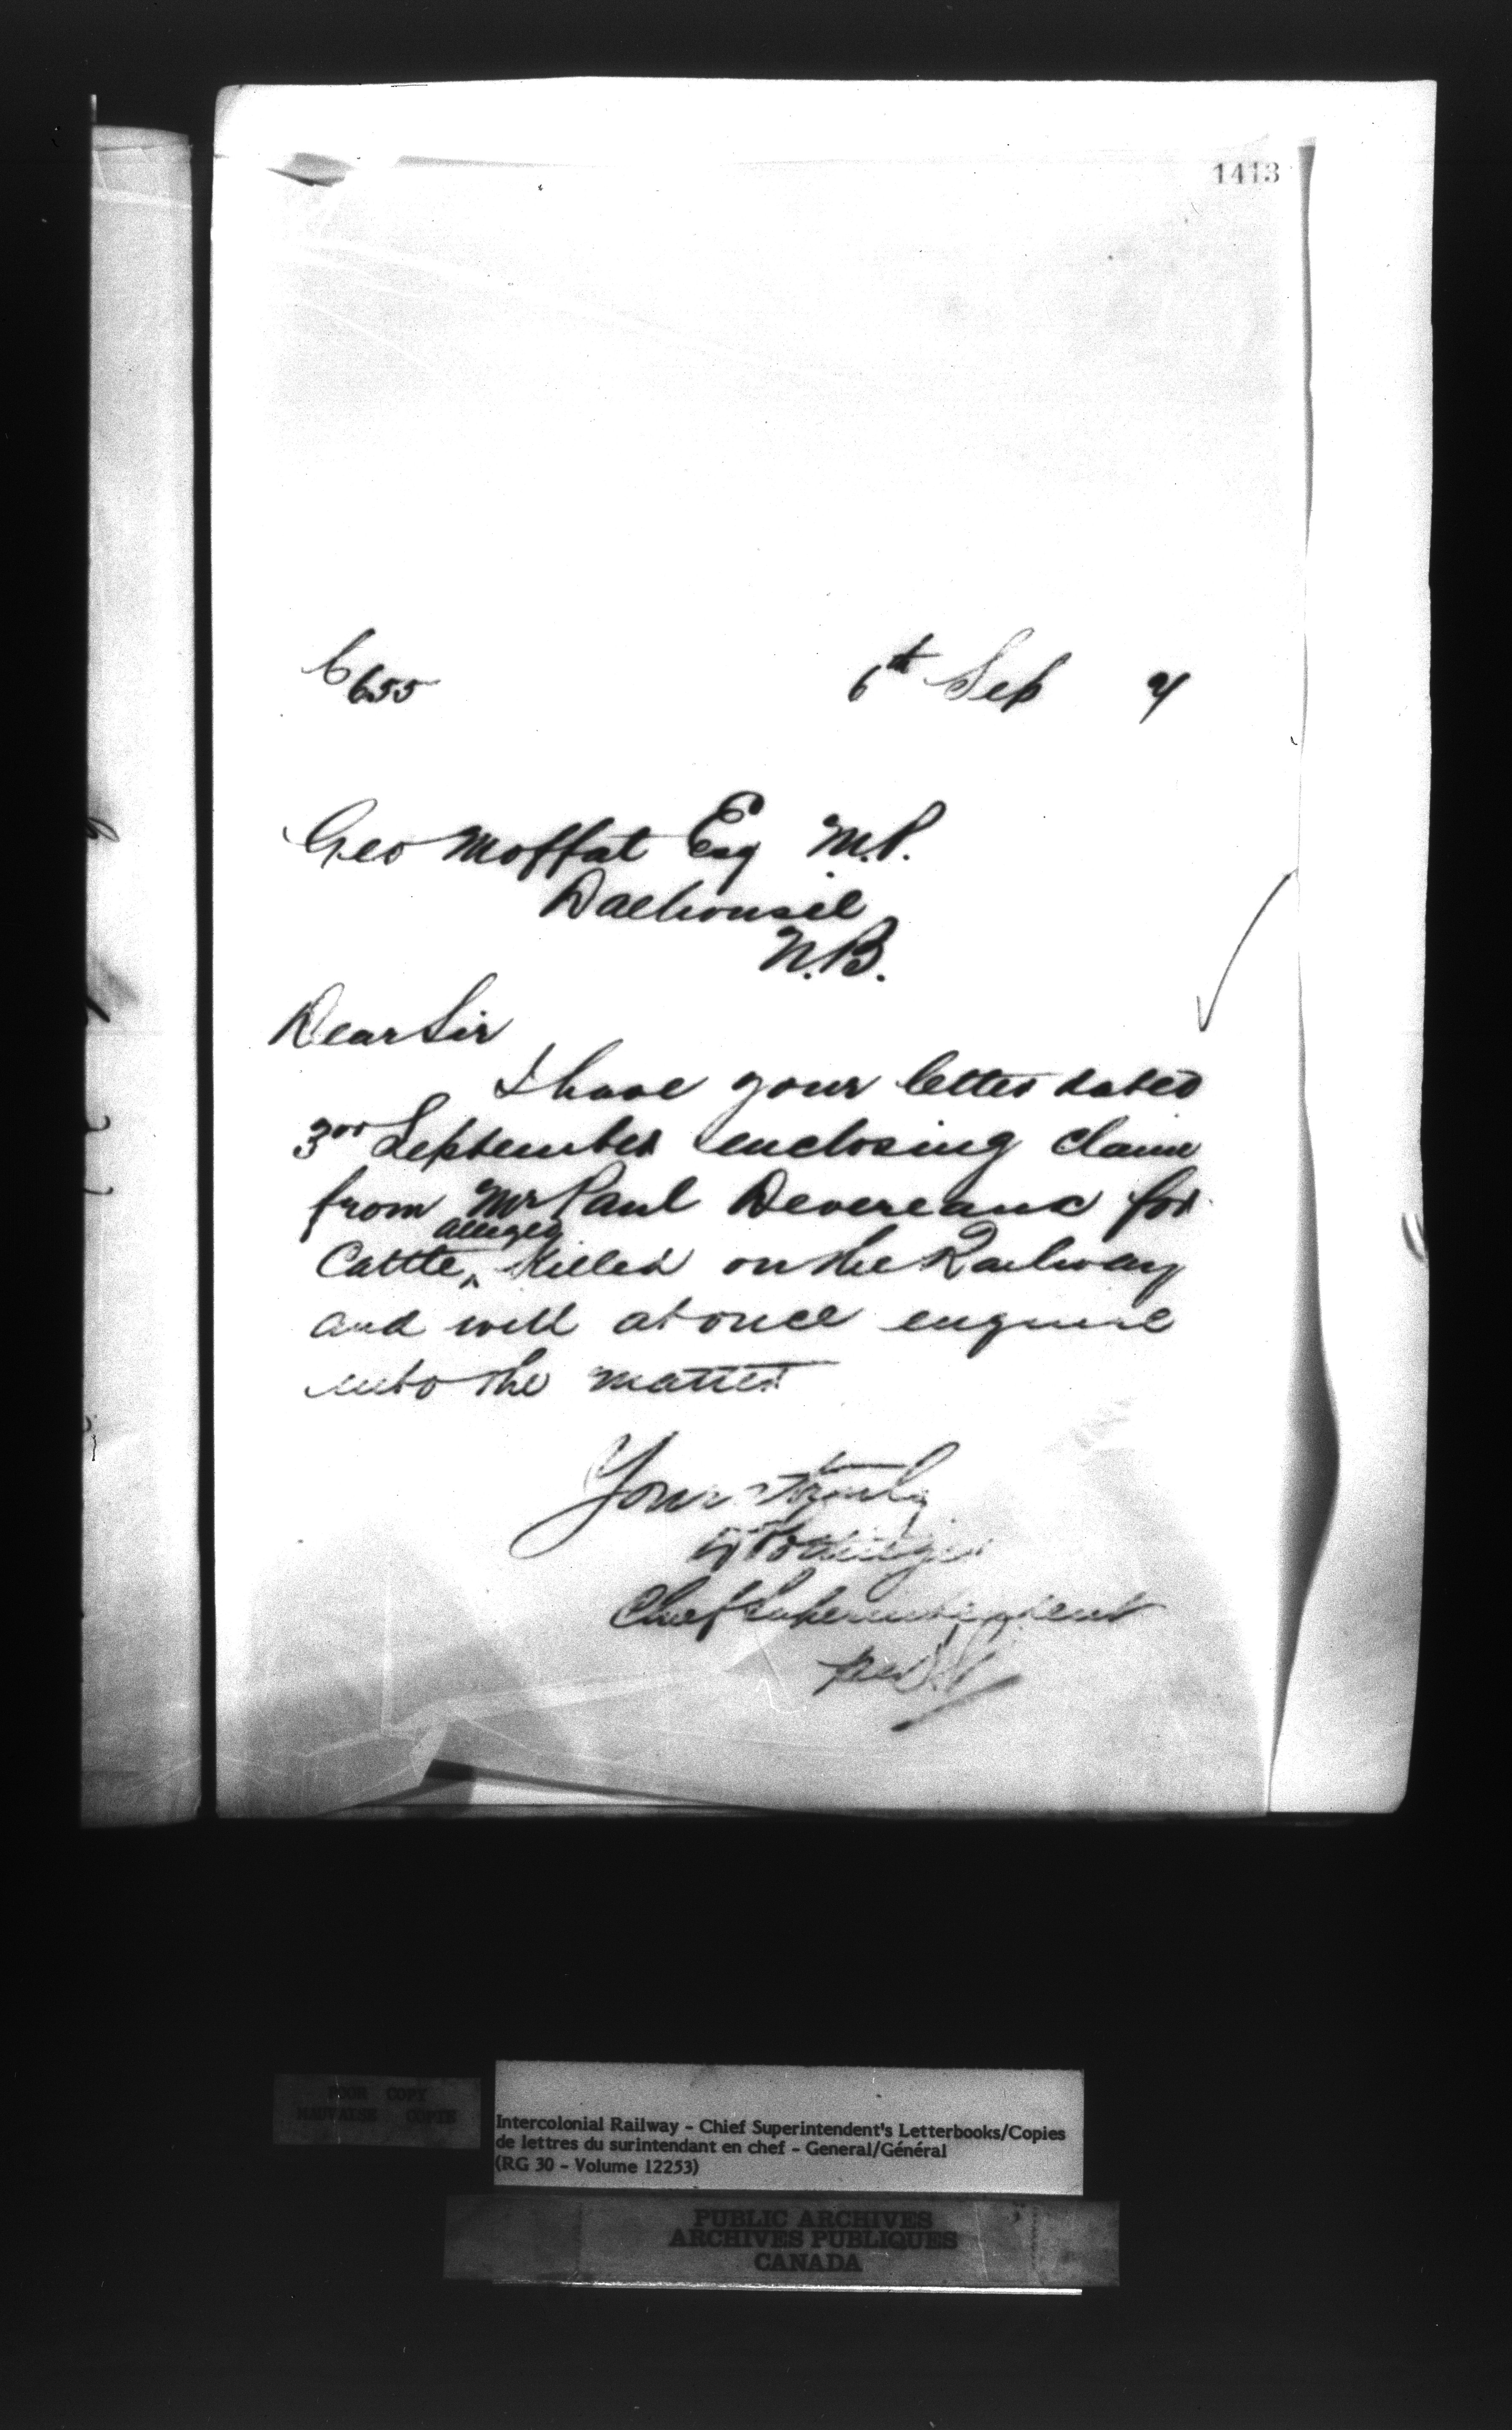 1413
C655 6th Sep
Geo Moffat Esq M.P.
Dalhousie
N.B.
Dear Sir
I have your letter dated
3rd September enclosing claim
from Mr Paul Devereaux for
alleged
Cattle ^ Killed on the Railway
and will at once enquire
into the matter
Yours truly
Chief Superintendent
POOR COPY
MAUVAISE COPIE
Intercolonial Railway - Chief Superintendent's Letterbooks/Copies
de lettres du surintendant en chef - General/Général
(RG 30 - Volume 12253)
PUBLIC ARCHIVES
ARCHIVES PUBLIQUES
CANADA